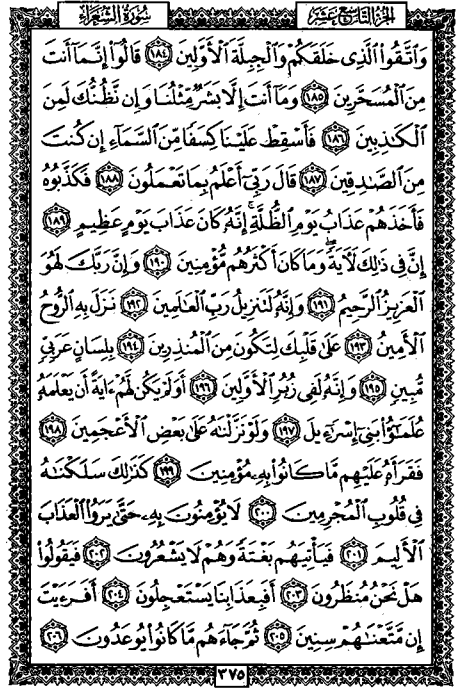 الجزء التاسع عشر
سورة الشعراء
وَاتَّقُوا الَّذِى خَلَقَكُمْ وَالْجِبِلَّةَ الْأَوَّلِينَ ١٨٤ قَالُوا إِنَّمَا أَنتَ
مِنَ الْمُسَحَّرِينَ ١٨٥ وَمَا أَنتَ إِلَّا بَشَرٌ مِّثْلُنَا وَإِن نَّظُنُّكَ لَمِنَ
الْكَٰذِبِينَ ١٨٦ فَأَسْقِطْ عَلَيْنَا كِسَفًا مِّنَ السَّمَاءِ إِن كُنتَ
مِنَ الصَّٰدِقِينَ ١٨٧ قَالَ رَبِّى أَعْلَمُ بِمَا تَعْمَلُونَ ١٨٨ فَكَذَّبُوهُ
فَأَخَذَهُمْ عَذَابُ يَوْمِ الظُّلَّةِ إِنَّهُ كَانَ عَذَابَ يَوْمٍ عَظِيمٍ ١٨٩
إِنَّ فِى ذَٰلِكَ لَآيَةً وَمَا كَانَ أَكْثَرُهُم مُّؤْمِنِينَ ١٩٠ وَإِنَّ رَبَّكَ لَهُوَ
الْعَزِيزُ الرَّحِيمُ ١٩١ وَإِنَّهُ لَتَنزِيلُ رَبِّ الْعَٰلَمِينَ ١٩٢ نَزَلَ بِهِ الرُّوحُ
الْأَمِينُ ١٩٣ عَلَىٰ قَلْبِكَ لِتَكُونَ مِنَ الْمُنذِرِينَ ١٩٤ بِلِسَانٍ عَرَبِىٍّ
مُّبِينٍ ١٩٥ وَإِنَّهُ لَفِى زُبُرِ الْأَوَّلِينَ ١٩٦ أَوَلَمْ يَكُن لَّهُمْ ءَايَةً أَن يَعْلَمَهُ
عُلَمَٰٓؤُا بَنِى إِسْرَٰءِيلَ ١٩٧ وَلَوْ نَزَّلْنَٰهُ عَلَىٰ بَعْضِ الْأَعْجَمِينَ ١٩٨
فَقَرَأَهُ عَلَيْهِم مَّا كَانُوا بِهِ مُؤْمِنِينَ ١٩٩ كَذَٰلِكَ سَلَكْنَٰهُ
فِى قُلُوبِ الْمُجْرِمِينَ ٢٠٠ لَا يُؤْمِنُونَ بِهِ حَتَّىٰ يَرَوُا الْعَذَابَ
الْأَلِيمَ ٢٠١ فَيَأْتِيَهُم بَغْتَةً وَهُمْ لَا يَشْعُرُونَ ٢٠٢ فَيَقُولُوا
هَلْ نَحْنُ مُنظَرُونَ ٢٠٣ أَفَبِعَذَابِنَا يَسْتَعْجِلُونَ ٢٠٤ أَفَرَءَيْتَ
إِن مَّتَّعْنَٰهُمْ سِنِينَ ٢٠٥ ثُمَّ جَاءَهُم مَّا كَانُوا يُوعَدُونَ ٢٠٦
٣٧٥